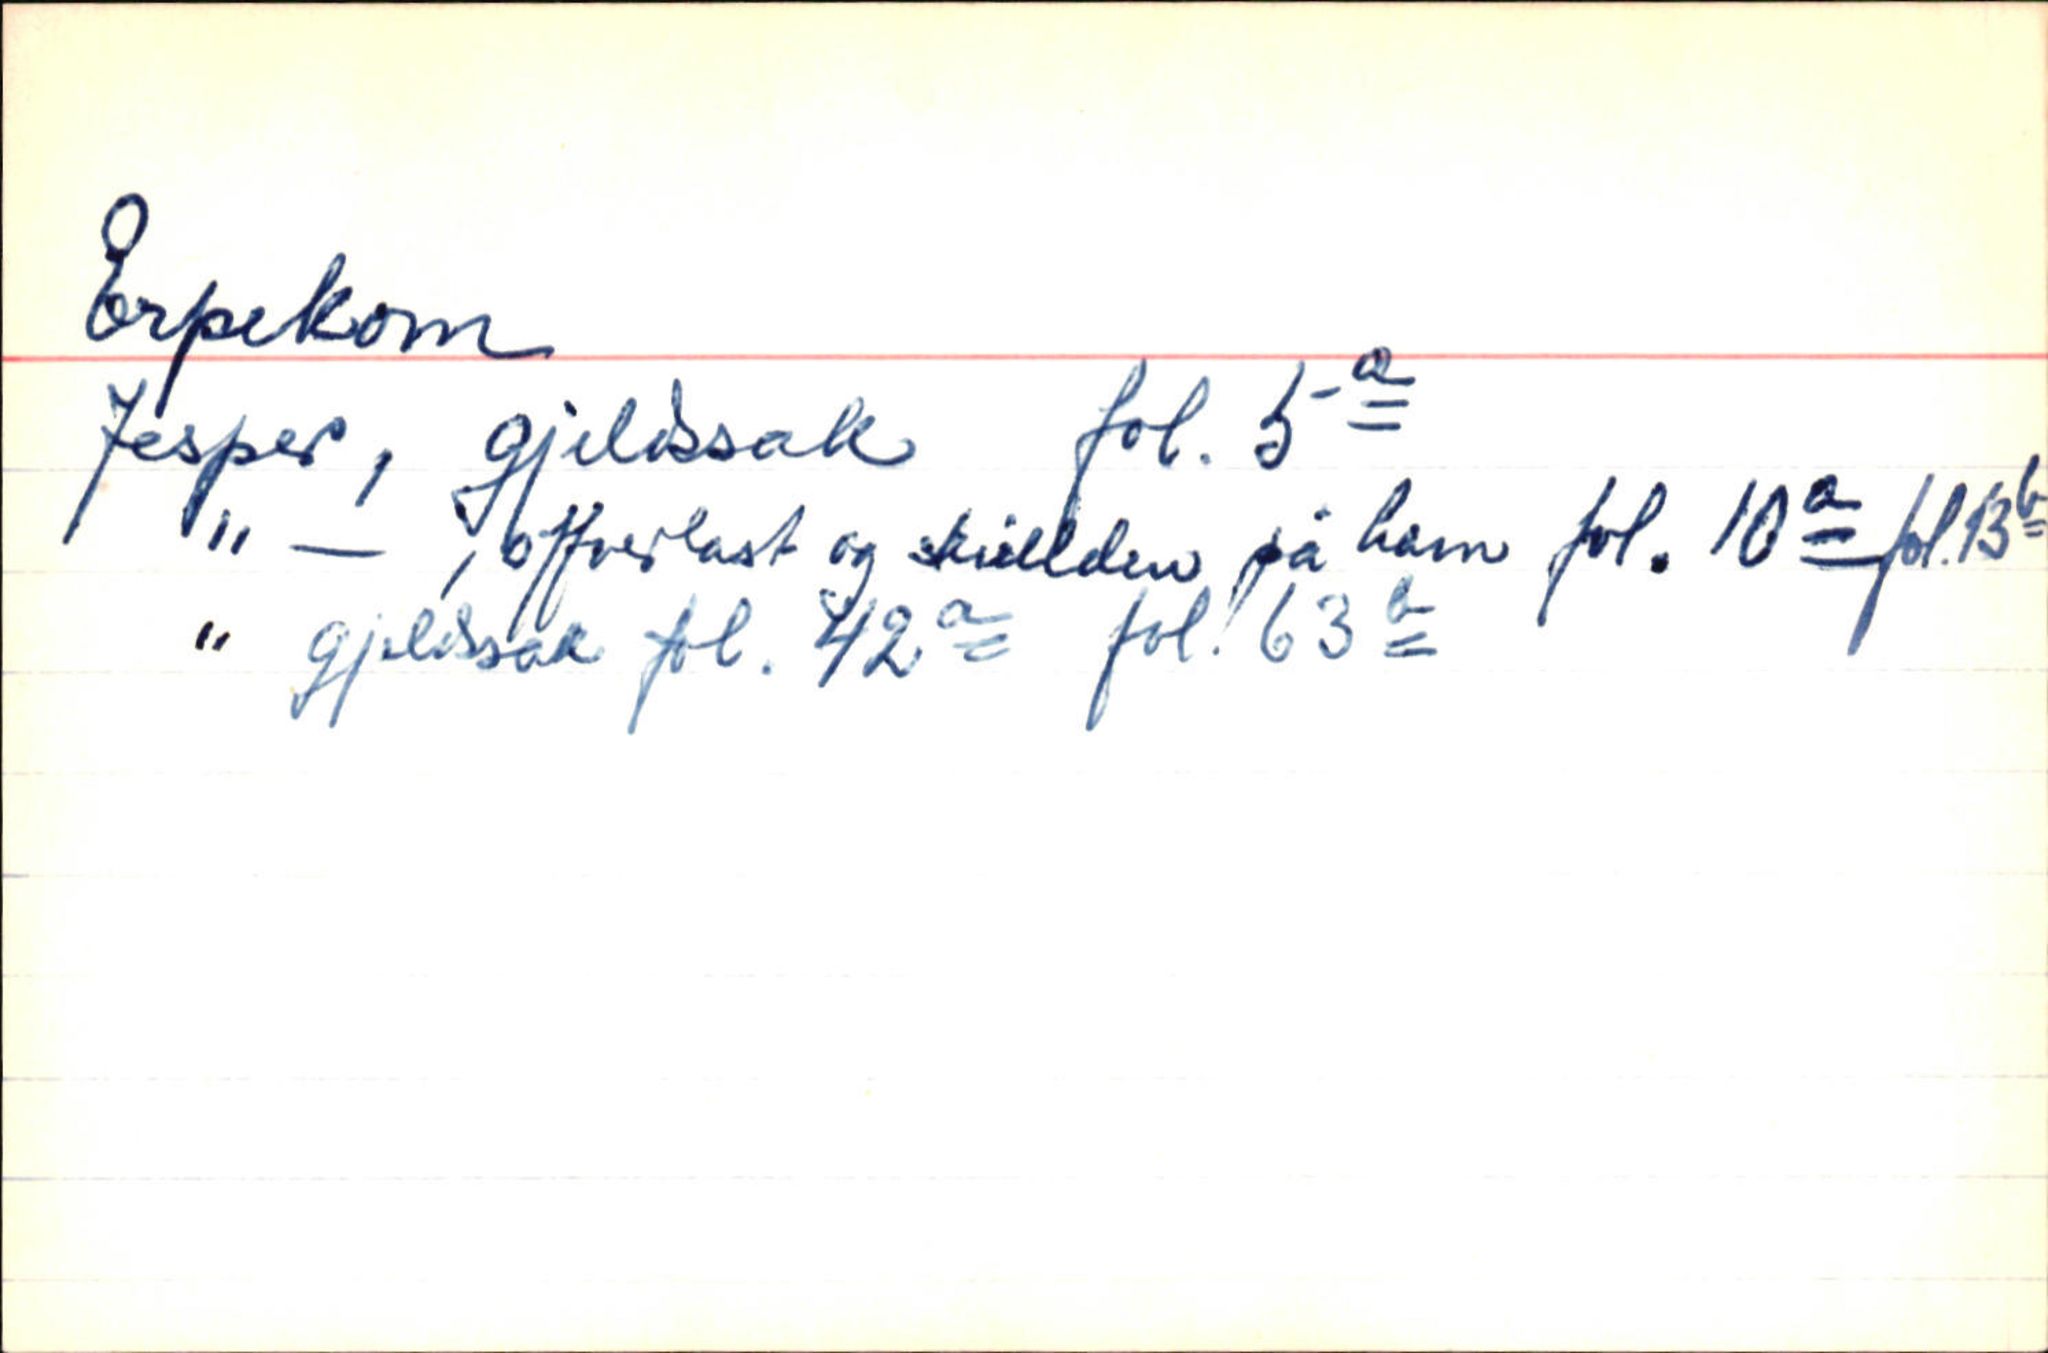 Erpekom
Jesper, gjeldssak fol. 5a
" — , offverlast og skiellden på ham fol. 10a fol. 13b
" gjeldssak fol. 42a fol. 63b